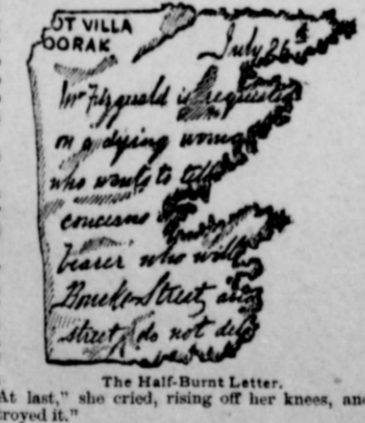 OT VILLA
OORAK
July 26th
Mr Fitzgerald is requested
on a dying woman
who wants to tell
concerns
bearer who will
Bourke Street and
street, do not del
The Half-Burnt Letter.
At last," she cried, rising off her knees, and
troyed it."